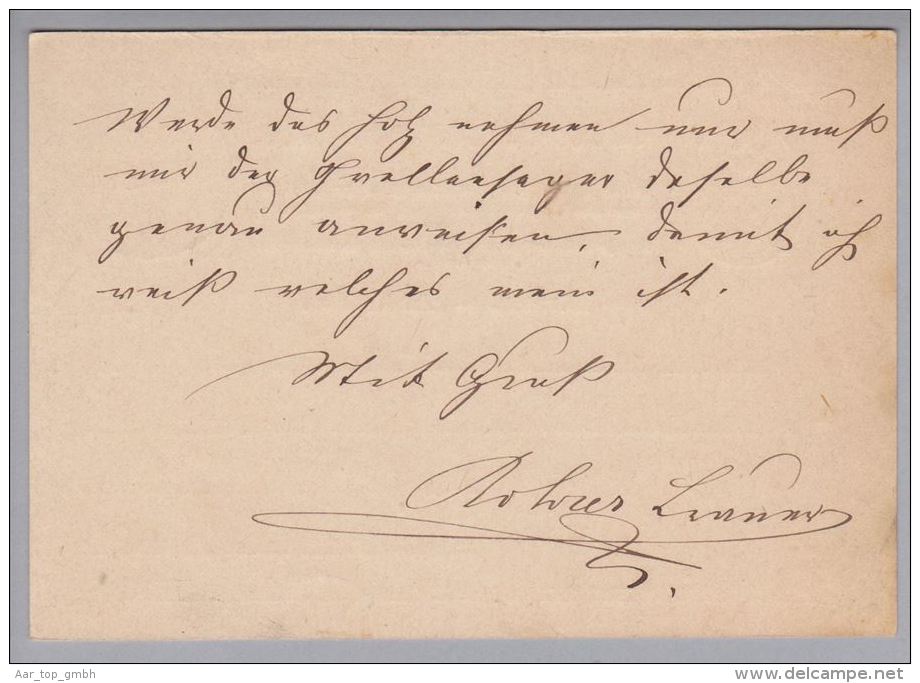 Werde das Holz nehmen und muß
mir der daselbe
genau anweisen, damit ich
weiß welches mein ist.
Mit Gruß
Rohrer
Aar_top_gmbh
www.delcampe.net